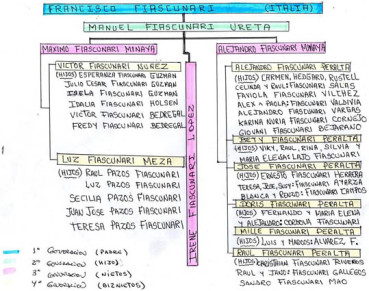 FRANCISCO FIASCUNARI (ITALIA)
MANUEL FIASCUNARI URETA
MAXIMO FIASCUNARI MINAYA
VICTOR FIASCUNARI NUÑEZ
(HIJOS) ESPERANZA FIASCUNARI GUZMAN
JULIO CESAR FIASCUNARI GUZMAN
FIASCUNARI GUZMAN
IDALIA FIASCUNARI HOLSEN
VICTOR FIASCUNARI BEDREGAL
FREDY FIASCUNARI BEDREGAL
LUZ FIASCUNARI MEZA
(HIJOS) RAUL PAZOS FIASCUNARI
LUZ PAZOS FIASCUNARI
SECILIA PAZOS FIASCUNARI
JUAN JOSE PAZOS FIASCUNARI
TERESA PAZOS FIASCUNARI
IRENE FIASCUNARI LOPEZ
ALEJANDRO FIASCUNARI MINAYA
ALEJANDRO FIASCUNARI PERALTA
(HIJOS) CARMEN, HEDGARD, RUSTELL
CELINDA Y RAUL: FIASCUNARI SALAS
FAVIOLA FIASCUNARI VILCHEZ
ALEX Y PAOLA: FIASCUNARI VALDIVIA
ALEJANDRO FIASCUNARI VARGAS
KARINA NURIA FIASCUNARI CORNEJO
GIOVANI FIASCUNARI BEJARANO
BETY FIASCUNARI PERALTA
(HIJOS) VIKY, RAUL, RINA, SILVIA Y
MARIA ELENA: LAJO FIASCUNARI
JOSE FIASCUNARI PERALTA
(HIJOS) ERNESTO FIASCUNARI HERRERA
TERESA, JOSE, SUSY: FIASCUNARI AYARZA
BLANCA Y RENZO: FIASCUNARI
DORIS FIASCUNARI PERALTA
(HIJOS) FERNANDO Y MARIA ELENA
Y ALEJANDRO: CORDOVA FIASCUNARI
MILLE FIASCUNARI PERALTA
(HIJOS) LUIS Y MARCOS: ALVAREZ F.
RAUL FIASCUNARI PERALTA
(HIJOS) CHRISTHIAN FIASCUNARI FIGUEROA
RAUL Y JANO: FIASCUNARI GALLEGOS
SANDRO FIASCUNARI MAO
1ª GENERACION (PADRE)
2ª GENERACION (HIJO)
3ª GENERACION (NIETOS)
4ª GENERACION (BIZNIETOS)